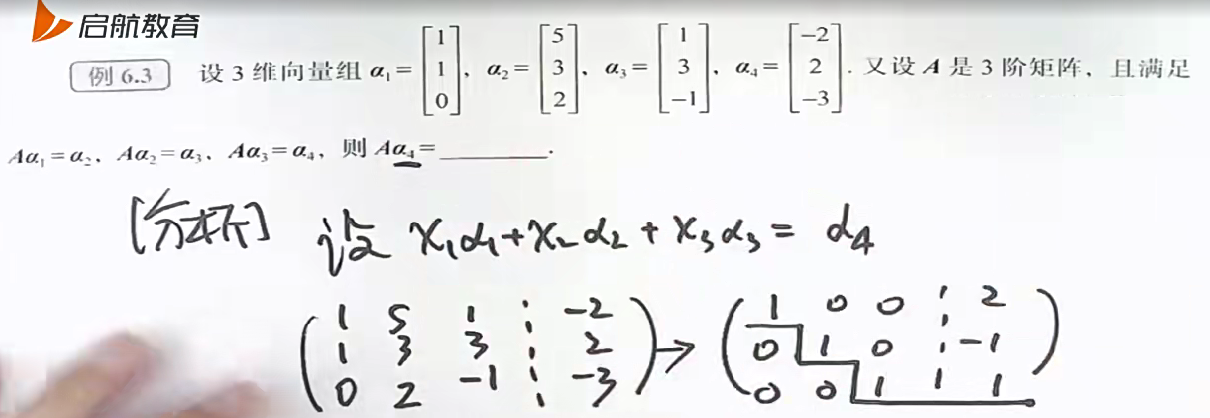 启航教育
例 6.3 设 3 维向量组 α₁=[1 1 0], α₂=[5 3 2], α₃=[1 3 -1], α₄=[-2 2 -3]. 又设 A 是 3 阶矩阵, 且满足
Aα₁=α₂, Aα₂=α₃, Aα₃=α₄, 则 Aα₄=________.
[分析] 设 x₁α₁+x₂α₂+x₃α₃=α₄
(1 5 1 ⋮ -2 → (1 0 0 ⋮ 2
1 3 3 ⋮ 2 0 1 0 ⋮ -1
0 2 -1 ⋮ -3) 0 0 1 ⋮ 1)